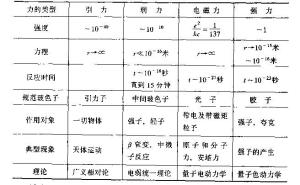 力的类型 引力 弱力 电磁力 强力
强度 ~10⁻³⁹ ~10⁻¹⁰ e²/ħc = 1/137 ~1
力程 r→∞ r≪10⁻¹⁶米 r→∞ r~10⁻¹⁵米
~10⁻¹⁶米
反应时间 t~10⁻⁸秒 t~10⁻²¹秒 t~10⁻²³秒
直到15分钟
规范玻色子 引力子 中间玻色子 光子 胶子
作用对象 一切物体 强子,轻子 带电及带磁矩 强子,夸克
粒子
典型现象 天体运动 β衰变,中微 原子和分子 强子的产生
子反应 力,安培力
理论 广义相对论 电弱统一理论 量子电动力学 量子色动力学